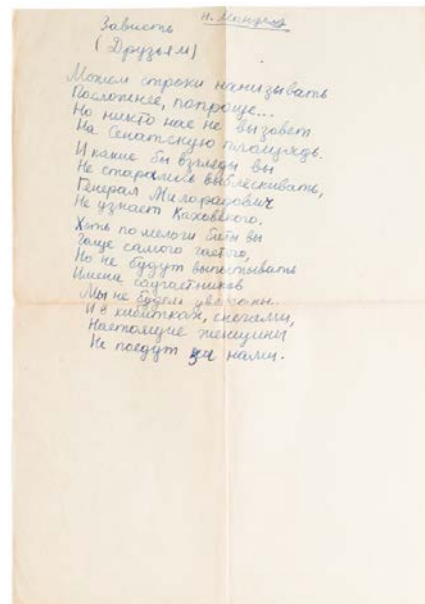 Н. Мандель
Зависть
(Друзьям)
Можем строки нанизывать
Посложнее, попроще...
Но никто нас не вызовет
На Сенатскую площадь.
И какие бы взгляды вы
Не старались выблёскивать,
Генерал Милорадович
Не узнает Каховского.
Хоть по мелочи биты вы
Чаще самого частого,
Но не будут выпытывать
Имена соучастников
Мы не будем увенчаны...
И в кибитках, снегами,
Настоящие женщины
Не поедут за нами.